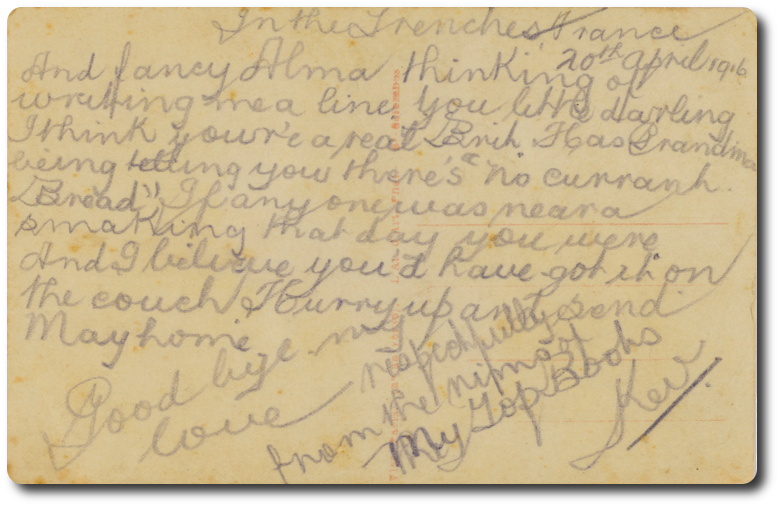 In the Trenches France
20th April 1916
And fancy Alma thinking of
writting me a line, You little darling
I think your'e a real Brik Has Grandma
being telling you there's "no currant
Bread" If any one was near a
smaking that day you were
And I believe you'd have got it on
the couch Hurry up and send
May home
Good bye my
love
respectfully
from the nims of
My Top Books
Kev